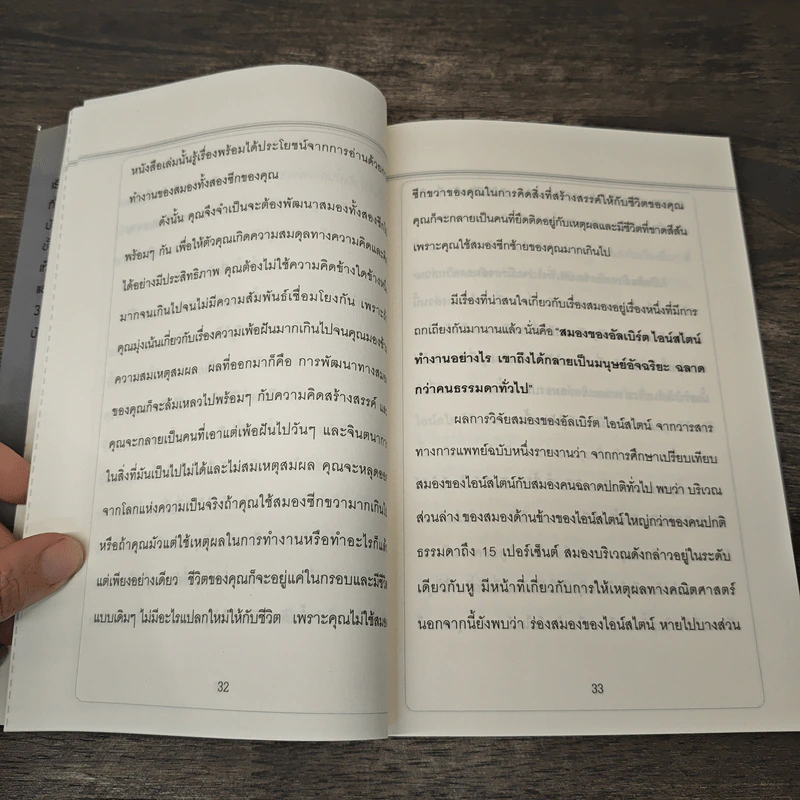 หนังสือเล่มนั้นรู้เรื่องพร้อมได้ประโยชน์จากการอ่านด้วย
ทำงานของสมองทั้งสองซีกของคุณ
ดังนั้น คุณจึงจำเป็นจะต้องพัฒนาสมองทั้งสองซีก
พร้อมๆ กัน เพื่อให้ตัวคุณเกิดความสมดุลทางความคิดและ
ได้อย่างมีประสิทธิภาพ คุณต้องไม่ใช้ความคิดข้างใดข้าง
มากจนเกินไปจนไม่มีความสัมพันธ์เชื่อมโยงกัน เพราะ
คุณมุ่งเน้นเกี่ยวกับเรื่องความเพ้อฝันมากเกินไปจนคุณมอง
ความสมเหตุสมผล ผลที่ออกมาก็คือ การพัฒนาทางสมอ
ของคุณก็จะล้มเหลวไปพร้อมๆ กับความคิดสร้างสรรค์ แ
คุณจะกลายเป็นคนที่เอาแต่เพ้อฝันไปวันๆ และจินตนากา
ในสิ่งที่มันเป็นไปไม่ได้และไม่สมเหตุสมผล คุณจะหลุดออ
จากโลกแห่งความเป็นจริงถ้าคุณใช้สมองซีกขวามากเกินไ
หรือถ้าคุณมัวแต่ใช้เหตุผลในการทำงานหรือทำอะไรก็แล้
แต่เพียงอย่างเดียว ชีวิตของคุณก็จะอยู่แค่ในกรอบและมีชีวิ
แบบเดิมๆ ไม่มีอะไรแปลกใหม่ให้กับชีวิต เพราะคุณไม่ใช้สมอ
32
ซีกขวาของคุณในการคิดสิ่งที่สร้างสรรค์ให้กับชีวิตของคุณ
คุณก็จะกลายเป็นคนที่ยึดติดอยู่กับเหตุผลและมีชีวิตที่ขาดสีสัน
เพราะคุณใช้สมองซีกซ้ายของคุณมากเกินไป
มีเรื่องที่น่าสนใจเกี่ยวกับเรื่องสมองอยู่เรื่องหนึ่งที่มีการ
ถกเถียงกันมานานแล้ว นั่นคือ "สมองของอัลเบิร์ต ไอน์สไตน์
ทำงานอย่างไร เขาถึงได้กลายเป็นมนุษย์อัจฉริยะ ฉลาด
กว่าคนธรรมดาทั่วไป"
ผลการวิจัยสมองของอัลเบิร์ต ไอน์สไตน์ จากวารสาร
ทางการแพทย์ฉบับหนึ่งรายงานว่า จากการศึกษาเปรียบเทียบ
สมองของไอน์สไตน์กับสมองคนฉลาดปกติทั่วไป พบว่า บริเวณ
ส่วนล่าง ของสมองด้านข้างของไอน์สไตน์ ใหญ่กว่าของคนปกติ
ธรรมดาถึง 15 เปอร์เซ็นต์ สมองบริเวณดังกล่าวอยู่ในระดับ
เดียวกับหู มีหน้าที่เกี่ยวกับการให้เหตุผลทางคณิตศาสตร์
นอกจากนี้ยังพบว่า ร่องสมองของไอน์สไตน์ หายไปบางส่วน
33